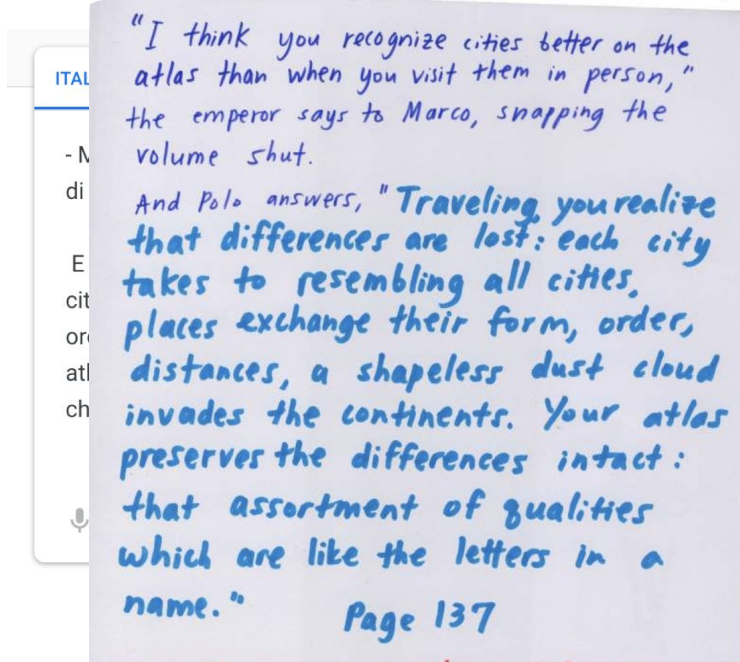 ITAL
- M
di
E
cit
ore
atl
ch
"I think you recognize cities better on the
atlas than when you visit them in person,"
the emperor says to Marco, snapping the
volume shut.
And Polo answers, "Traveling, you realize
that differences are lost: each city
takes to resembling all cities,
places exchange their form, order,
distances, a shapeless dust cloud
invades the continents. Your atlas
preserves the differences intact:
that assortment of qualities
which are like the letters in a
name."
Page 137